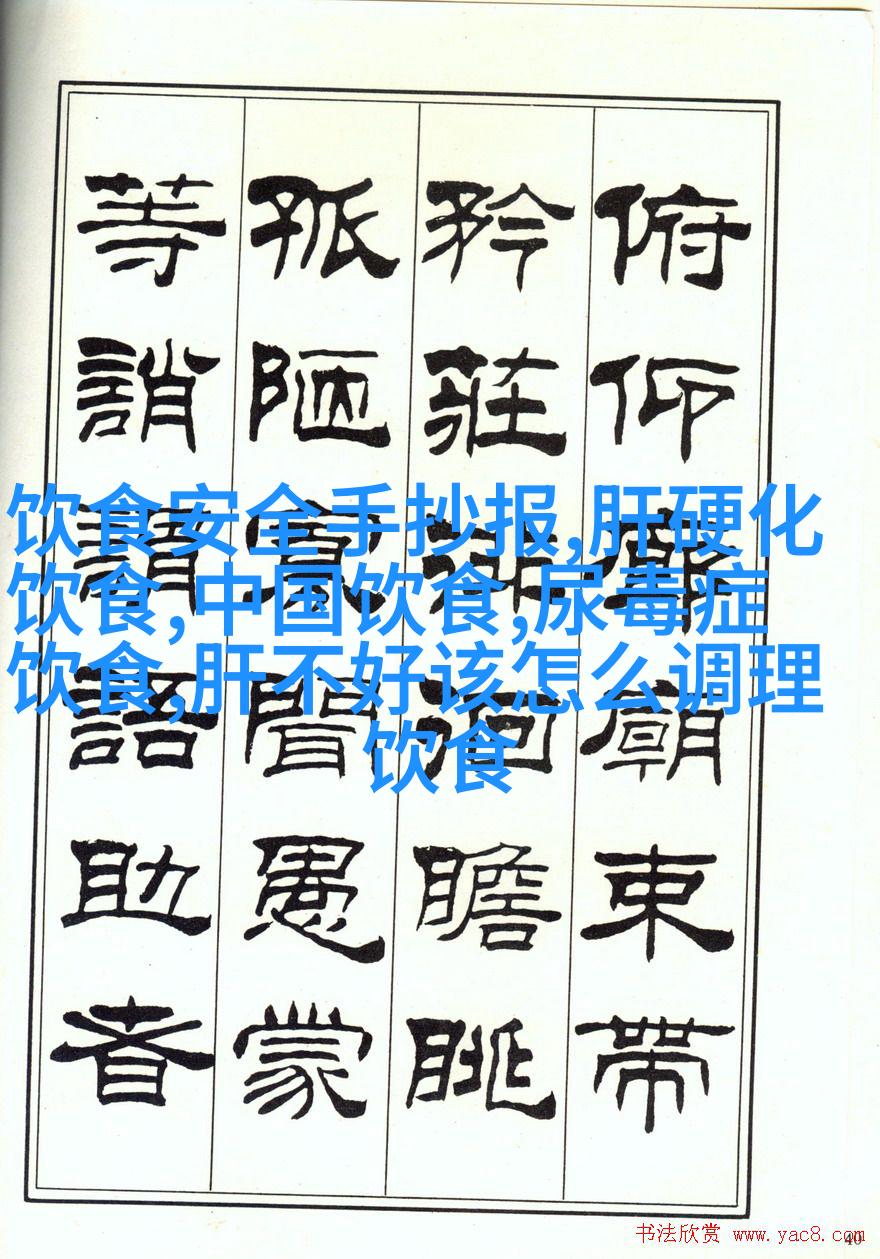 俯仰廊廟束帶
矜莊徘徊瞻眺
孤陋寡聞愚蒙
等誚謂語助者
饮食安全手抄报,肝硬化
饮食,中国饮食,尿毒症
饮食,肝不好该怎么调理
饮食
书法欣赏 www.yac8.com
40